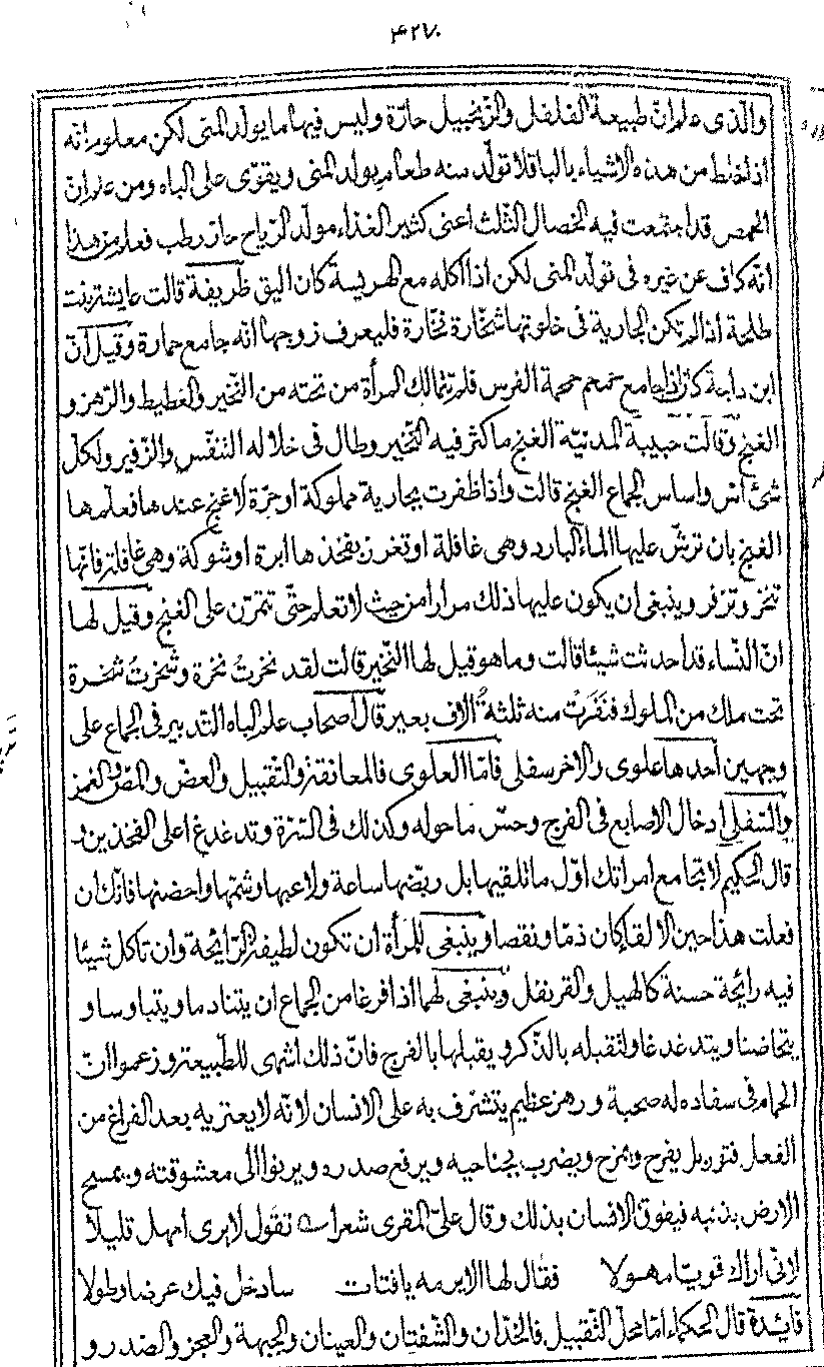 ۴۲۷
والذى علم انّ طبيعة الفلفل والزنجبيل حارّة وليس فيها ما يولّد المنى لكن معلوم انّه
اذا خلط من هذه الاشياء بالباقلا تولّد منه طعام يولد المنى ويقوّى على الباه ومن علم انّ
الحمص قد اجتمعت فيه الخصال الثلث اعنى كثير الغذاء مولّد الرياح حارّ رطب فعلم من هذا
انّه كاف عن غيره فى تولّد المنى لكن اذا اكله مع الهريسة كان اليق ظريفة قالت عايشة بنت
طلحة اذا لم تكن الجارية فى خلوتها شخّارة نخّارة فليعرف زوجها انّه جامع حمارة وقيل انّ
ابن داية كان اذا جامع حمحم حمحمة الفرس فلم تتمالك المرأة من تحته من النّخير والغطيط والرّهز و
الغنج وقالت حبيبة المدنيّة الغنج ما كثر فيه النّخير وطال فى خلاله التنفّس والزّفير ولكلّ
شئ اسّ واساس الجماع الغنج قالت واذا ظفرت بجارية مملوكة او حرّة لا غنج عندها فعلّمها
الغنج بان ترشّ عليها الماء البارد وهى غافلة او تغرز بفخذها ابرة او شوكة وهى غافلة فانّها
تنخر وتزفر وينبغى ان يكون عليها ذلك مرارا من حيث لا تعلم حتّى تتمرّن على الغنج وقيل لها
انّ النّساء قد احدثت شيئا قالت وما هو قيل لها النّخير قالت لقد نخرتُ نخرة وشخرتُ شخرة
تحت ملك من الملوك فنفرت منه ثلثة آلاف بعير قال اصحاب علم الباه التدبير فى الجماع على
وجهين احدها علوى والاخر سفلى فامّا العلوى فالمعانقة والتقبيل والعضّ والمصّ والغمز
والسّفلى ادخال الاصابع فى الفرج وحسّ ما حوله وكذلك فى السّرّة وتدغدغ اعلى الفخذين و
قال الحكيم لا تجامع امراتك اوّل ما تلقيها بل ربّضها ساعة ولاعبها وشمّها واحضنها فانّك ان
فعلت هذا حين الالقاء كان ذمّا ونقصا وينبغى للمرأة ان تكون لطيفة الرّايحة وان تاكل شيئا
فيه رايحة حسنة كالهيل والقرنفل وينبغى لهما اذا فرغا من الجماع ان يتنادما ويتباوسا و
يتحاضنا ويتدغدغا ولتقبله بالذّكر ويقبلها بالفرج فانّ ذلك اشهى للطّبيعة وزعموا انّ
الحمام فى سفاده له صحبة ورهز عظيم يتشرّف به على الانسان لانّه لا يعتريه بعد الفراغ من
الفعل فتور بل يفرح ويمزح ويضرب بجناحيه ويرفع صدره ويرنوا الى معشوقته ويمسح
الارض بذنبه فيفوق الانسان بذلك وقال علىّ المقرى شعرا تقول لايرى امهل قليلا
لانّى اراك قويّا مهولا فقال لها الاير مه يا فتات سادخل فيك عرضا وطولا
فايدة قال الحكماء امّا محلّ التّقبيل فالخدّان والشّفتان والعينان والجبهة والعجز والصّدر و